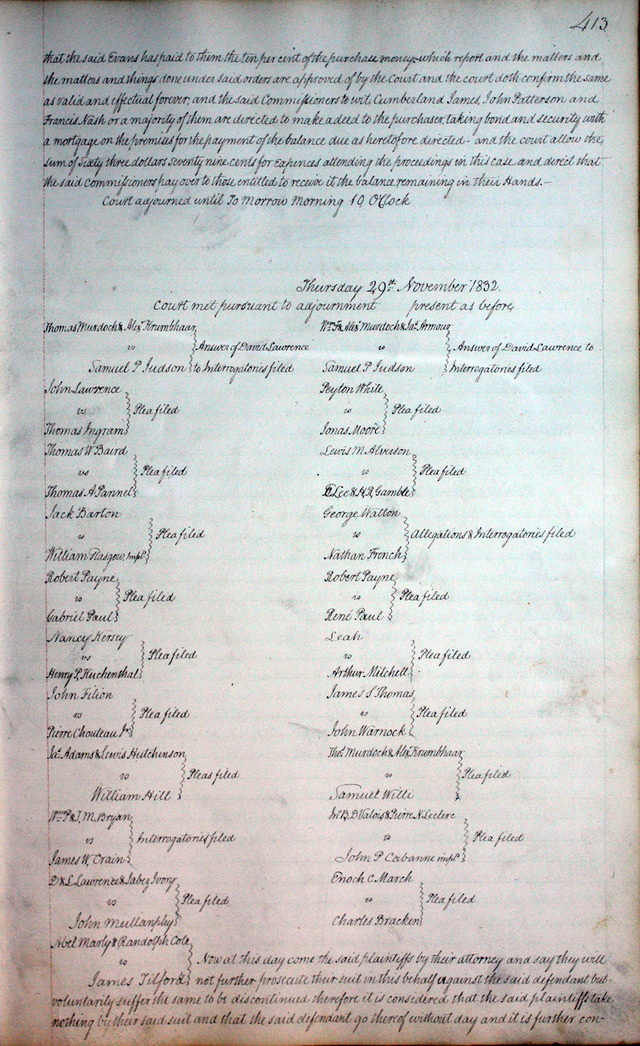 413
that the said Evans has paid to them the ten per cent of the purchase money which report and the matters and
the matters and things done under said orders are approved of by the Court and the court doth confirm the same
as valid and effectual forever, and the said Commissioners to wit, Cumberland James, John Patterson and
Francis Nash or a majority of them are directed to make a deed to the purchaser, taking bond and security with
a mortgage on the premises for the payment of the balance due as heretofore directed - and the court allow the
sum of Sixty three dollars Seventy nine cents for Expences attending the proceedings in this case and direct that
the said Commissioners pay over to those entitled to receive it the balance remaining in their Hands.-
Court adjourned until To Morrow Morning 10 O'Clock
Thursday 29th November 1832.
Court met pursuant to adjournment present as before,
Thomas Murdoch & Alexr Krumbhaar
vs Answer of David Lawrence
Samuel P Judson to Interrogatories filed
Wm Fx, Alexr Murdoch & Jas Armour
vs Answer of David Lawrence to
Samuel P Judson Interrogatories filed
John Lawrence
vs Plea filed
Thomas Ingram
Peyton White
vs Plea filed
Jonas Moore
Thomas W Baird
vs Plea filed
Thomas A Pannel
Lewis M Alverson
vs Plea filed
D Lee & H R Gamble
Jack Barton
vs Plea filed
William Glasgow, impl
George Walton
vs Allegations & Interrogatories filed
Nathan French
Robert Payne
vs Plea filed
Gabriel Paul
Robert Payne
vs Plea filed
René Paul
Nancy Kersey
vs Plea filed
Henry P. Kuchenthal
Leah
vs Plea filed
Arthur Mitchell
John Filion
vs Plea filed
Pierre Chouteau Jr
James S Thomas
vs Plea filed
John Warnock
Jas Adams & Lewis Hutchinson
vs Pleas filed
William Hill
Thos Murdoch & Alex Krumbhaar
vs Plea filed
Samuel Willi
Wm P & J. M. Bryan
vs Interrogatories filed
James W. Crain
D Valois & Pierre N Leclerc
vs Plea filed
John P Cabanne impl
D. & L Lawrence & Jabez Ivory
vs Plea filed
John Mullanphy
Enoch C March
vs Plea filed
Charles Bracken
Abel Marly & Randolph Cole
vs Now at this day come the said plaintiffs by their attorney and say they will
James Tilford not further prosecute their suit in this behalf against the said defendant but
voluntarily suffer the same to be discontinued therefore it is considered that the said plaintiffs take
nothing by their said suit and that the said defendant go thereof without day and it is further con-